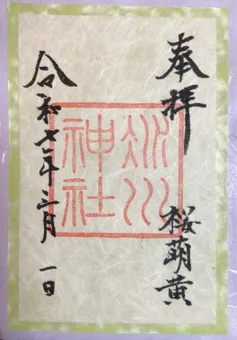 奉拝
桜萌黄
氷川
神社
令和七年三月一日